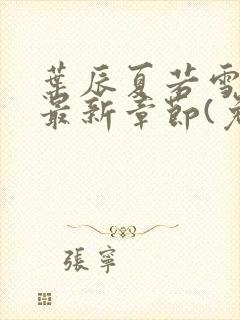 葉辰夏若雪
最新章節(
張寧